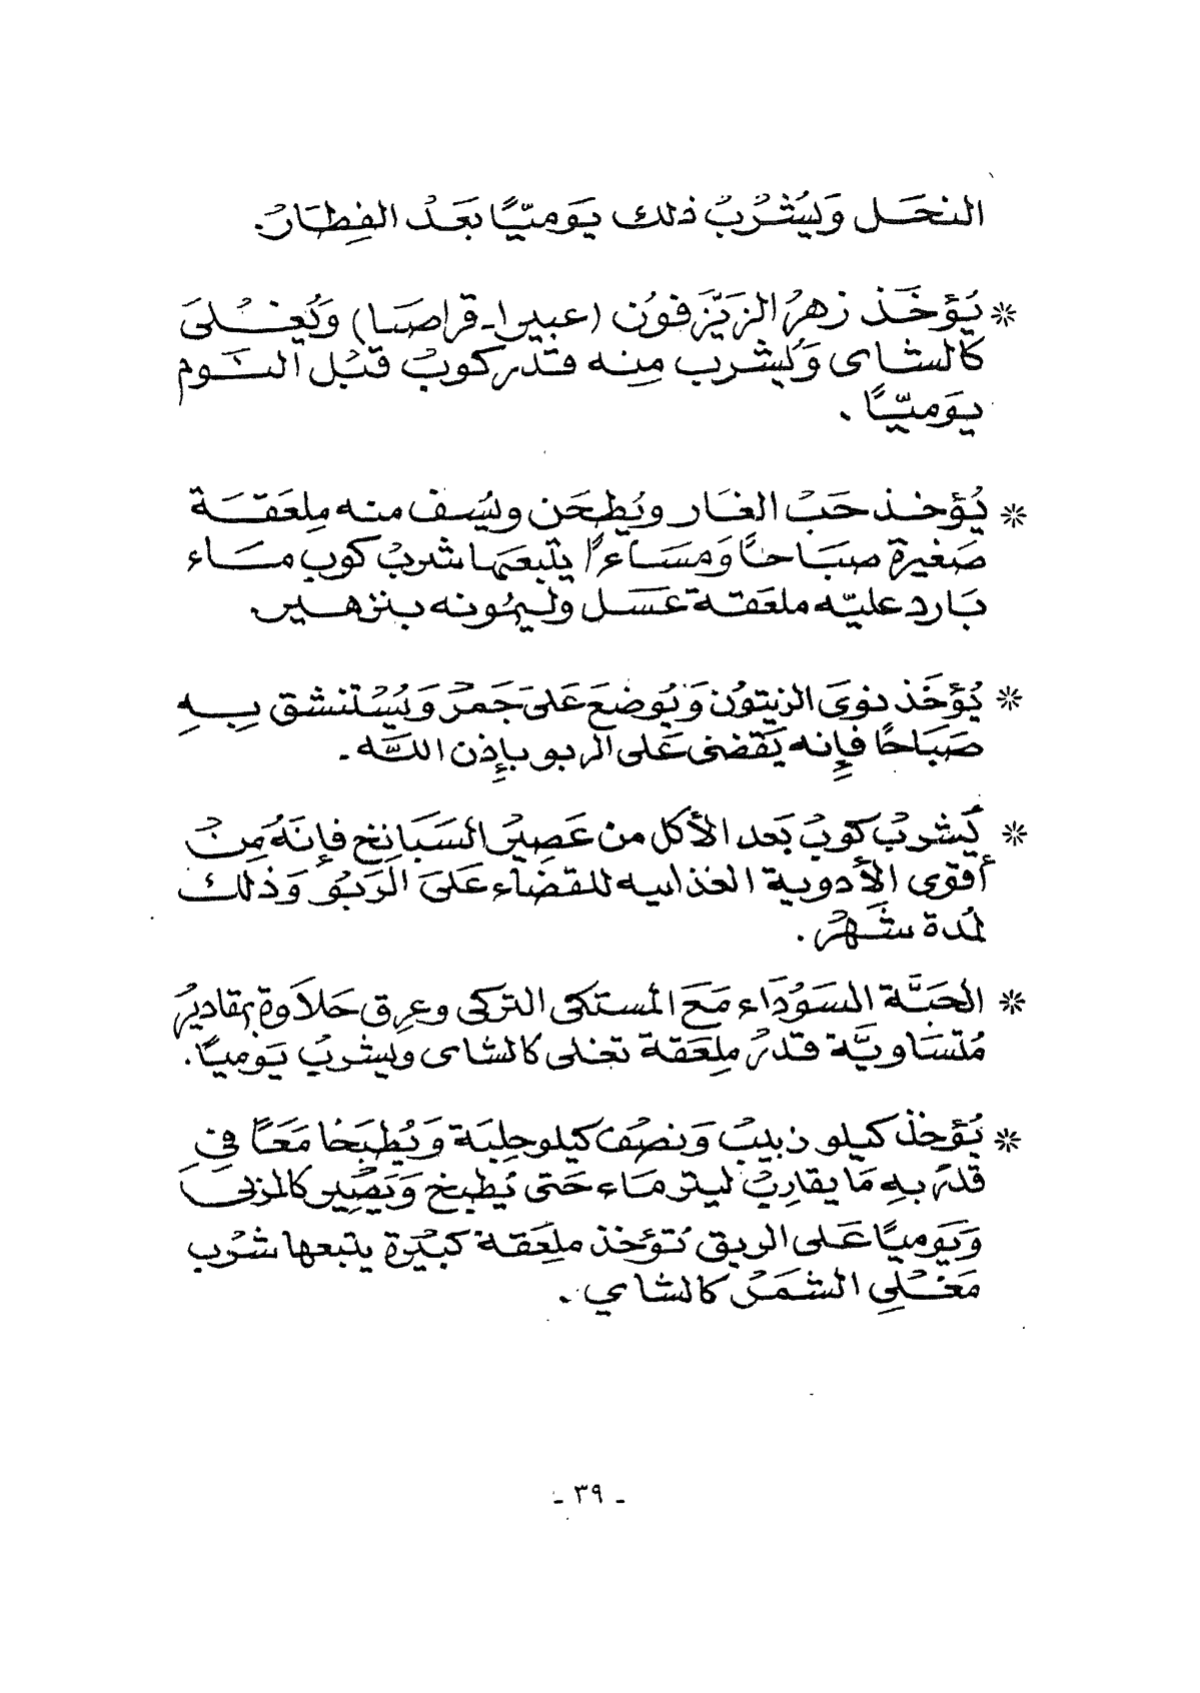 النحَل وَيُشْرُبْ ذلك يَوميّاً بَعَدْ الفِطَارْ.
* يُؤخَذ زهرُ الزَيّزَفوُن (عبيرا-قراصيا) وَيُغْلىَ
كالشاى وَيُشرب مِنه قدر كوبْ قبْل النوم
يوَميّاً .
* يُؤخذ حَبْ الغَار ويُطحَن ويُسف منه مِلعَقَة
صَغيرة صبَاحاً وَمسَاءاً يتْبعَها شربْ كوب مَاء
بَارد عليّه ملعَقة عَسَل وليمُونه بنزهير
* يُؤخَذ نوَى الزيتوُن وَيُوضعَ عَلىَ جَمرْ وَيُسْتنشق بِهِ
صَبَاحًا فإِنه يَقضى عَلى الربو بإِذن اللَّه .
* يُشربْ كوبْ بَعد الأكل من عَصِيرْ السَبَانِخ فإِنَهُ مِنْ
أقوى الأدوية الغذائيه للقضَاء عَلىَ الرَبْو وَذلك
لمُدة شَهرْ .
* الحَبَّة السَوْدَاء مَعَ المستكى التركى وعِرق حَلاَوة بمقاديرْ
مُتسَاويَّة قدرْ مِلعَقة تغلى كالشاى ويشربْ يَومياً.
* يُؤخذ كيلو زبيبْ وَنصْف كيلو حِلبَة وَيُطبَخا مَعَاً فىِ
قدرْ بهِ مَا يقاربْ ليتر مَاء حَتى يُطبخ وَيَصْير كالمربى
وَيَومياً عَلى الريق تُؤخذ ملعَقة كبْيرة يتبعها شرْب
مَغْلِي الشمَرْ كالشاي .
- ٣٩ -